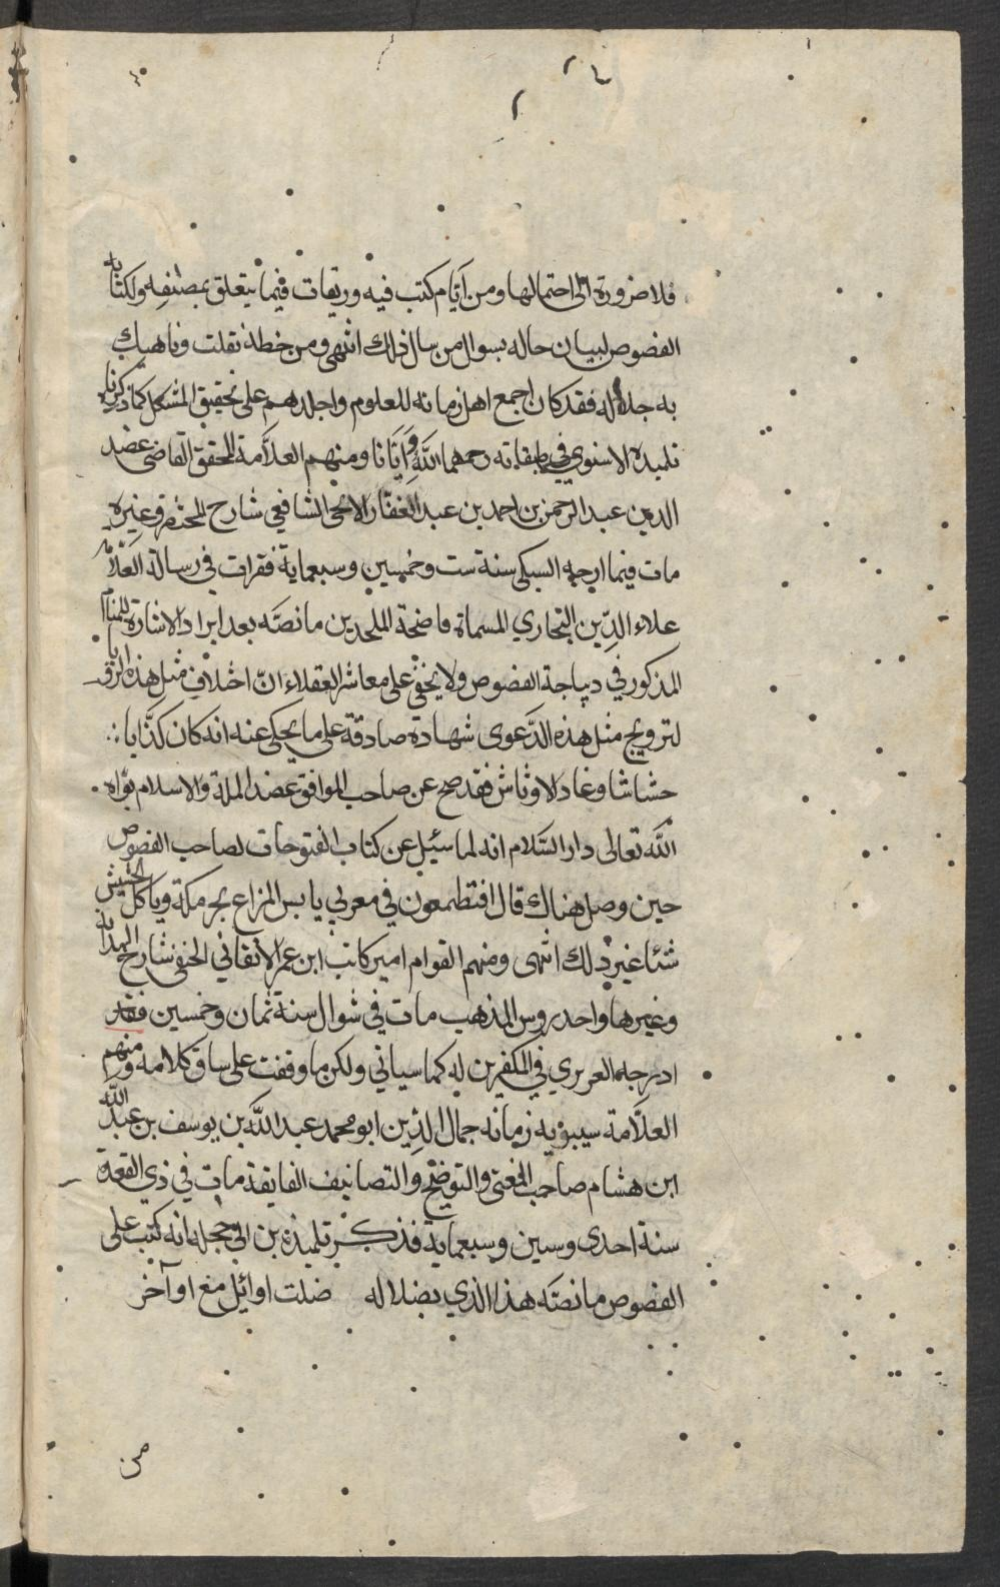 فلا ضرورة الى احتمالها ومن اتام كتب فيه وريقات فيما يتعلق بمصنفه ولكتابه
الفصوص لبيان حاله بسوال من سال ذلك انتهى ومن خطه نقلت وناهيك
به جلالة فقد كان اجمع اهل زمانه للعلوم واجلدهم على تحقيق المشكل كما ذكرنا
تلميذه الاسنوي في طبقاته رحمهما الله وايانا ومنهم العلامة المحقق القاضي عضد
الدين عبد الرحمن بن احمد بن عبد الغفار الايجي الشافعي شارح المختصر وغيره
مات فيما ارخه السبكي سنة ست وخمسين وسبعماية فقرات في رسالة العلامة
علاء الدين البخاري المسماة فاضحة الملحدين ما نصه بعد ايراد الاشارة للمنام
المذكور في ديباجة الفصوص ولا يخفى على معاشر العقلاء ان اختلاف مثل هذه الرؤيا
لترويج مثل هذه الدعوى شهادة صادقة على ما يحكى عنه انه كان كذابا
حشاشا وغاد لاوثاش فقد صح عن صاحب المواقف عضد الملة والاسلام بواه
الله تعالى دار السلام انه لما سئيل عن كتاب الفتوحات لصاحب الفصوص
حين وصل هناك قال افتطمعون في مغربي يابس المزاع بحر مكة وياكل الحشيش
شئا غير ذلك انتهى ومنهم القوام امير كاتب ابن عمر الاتقاني الحنفي شارح الهداية
وغيرها واحد روس المذهب مات في شوال سنة ثمان وخمسين فقد
ادرجه العريري في المكفرين له كما سياتي ولكن ما وقفت على ساق كلامه ومنهم
العلامة سيبويه زمانه جمال الدين ابو محمد عبد الله بن يوسف بن عبد الله
ابن هشام صاحب المغني والتوضيح والتصانيف الفايقة مات في ذي القعدة
سنة احدى وسين وسبعماية فذكر تلميذه بن ابي حجله انه كتب على
الفصوص ما نصه هذا الذي بضلاله ضلت اوائيل مع اواخر
من